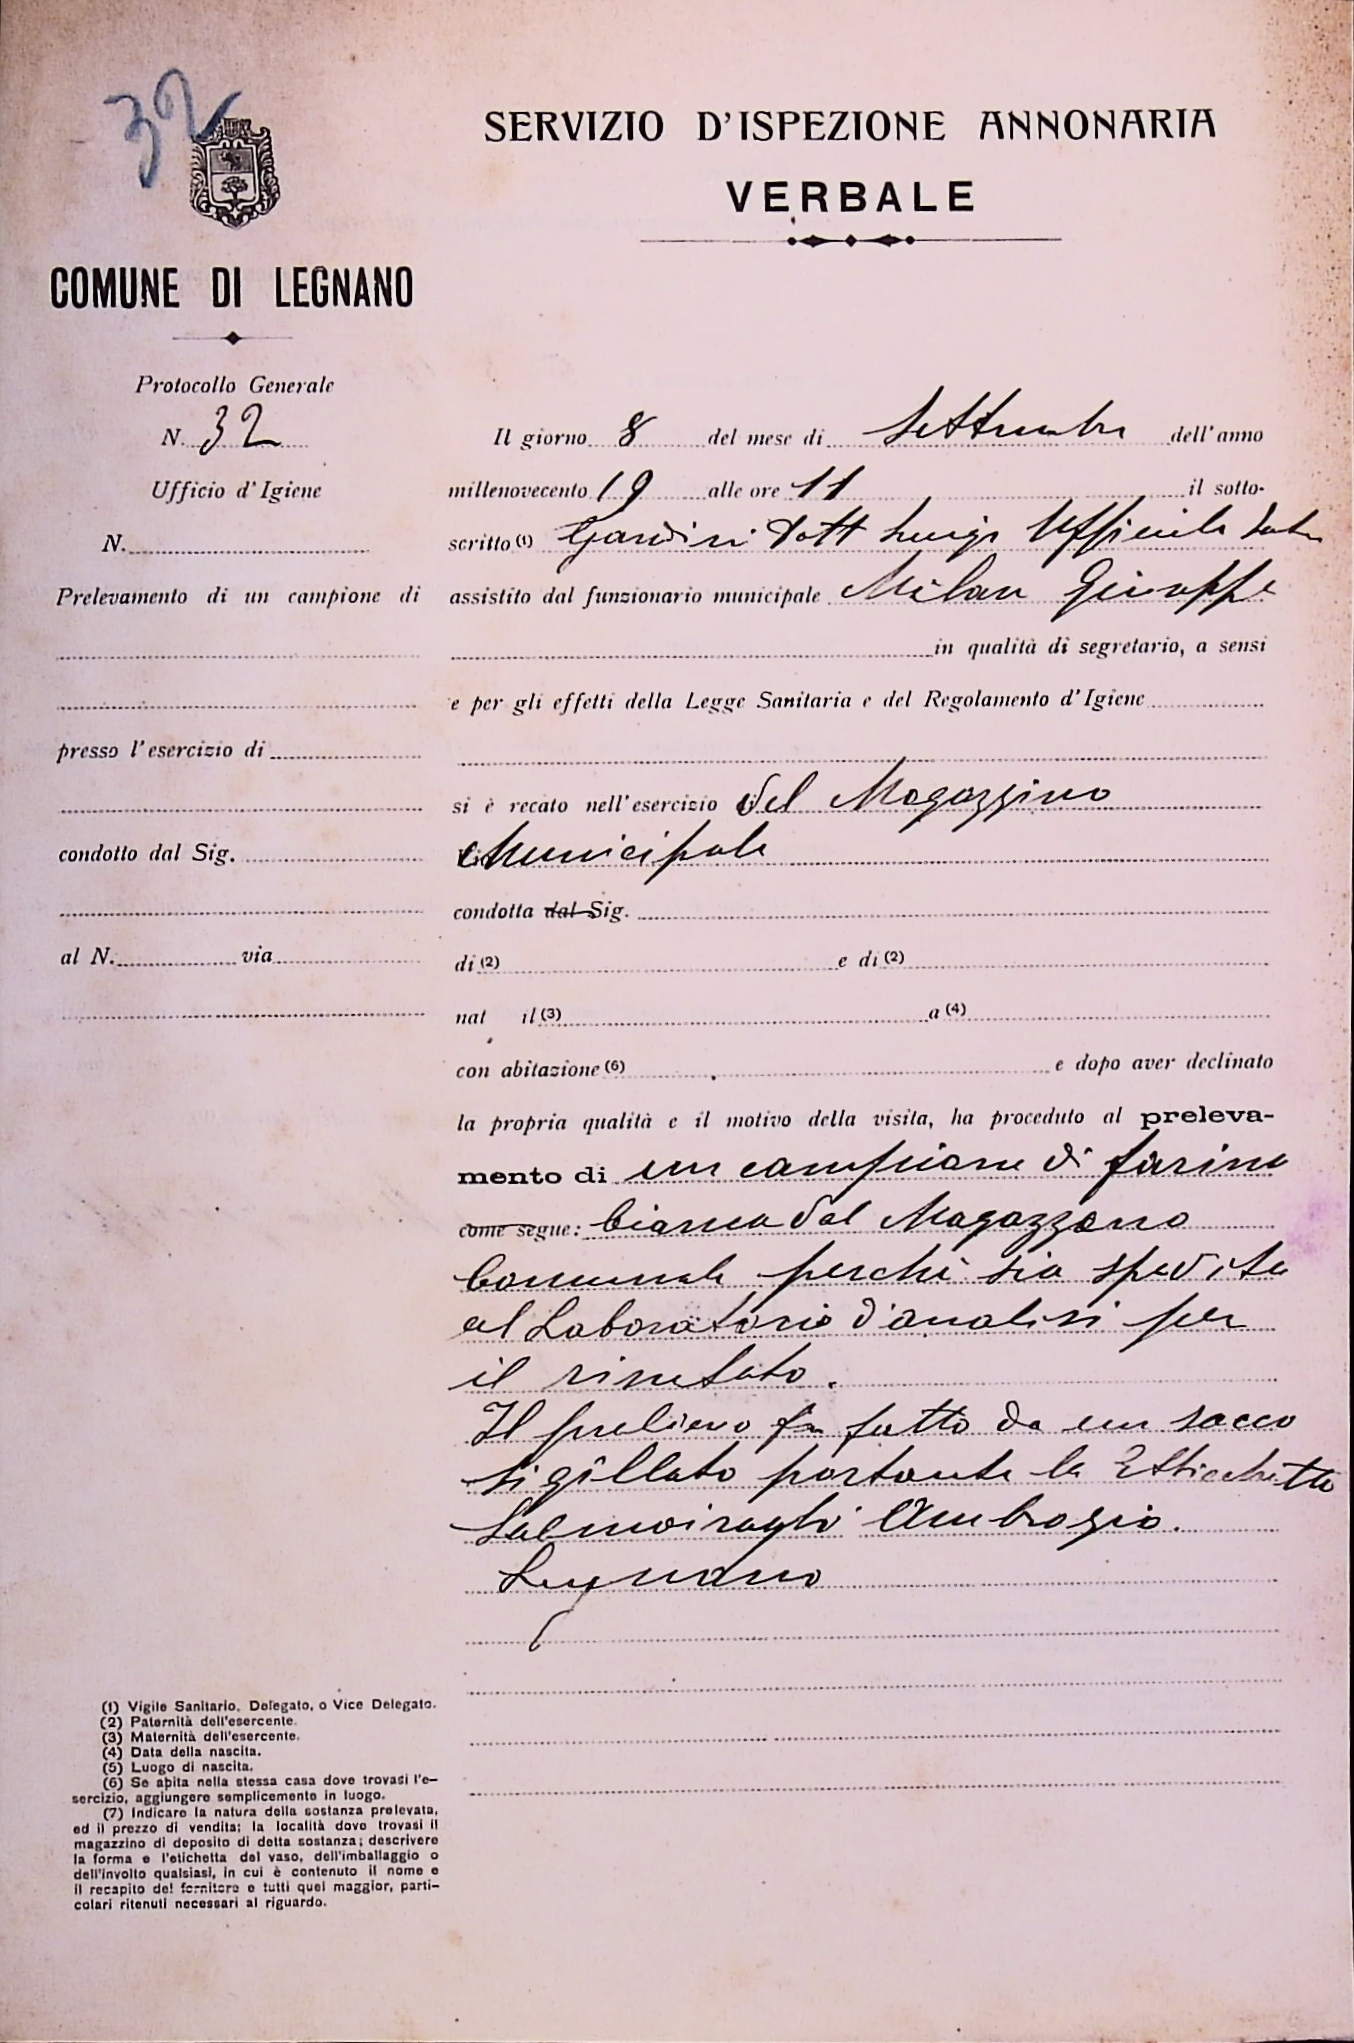 32
SERVIZIO D'ISPEZIONE ANNONARIA
VERBALE
COMUNE DI LEGNANO
Protocollo Generale
N. 32
Ufficio d'Igiene
N.
Prelevamento di un campione di
presso l'esercizio di
condotto dal Sig.
al N. via
Il giorno 8 del mese di Settembre dell'anno
millenovecento 19 alle ore 11 il sotto-
scritto (1) Dott Luigi Ufficiale
assistito dal funzionario municipale Milan Giuseppe
in qualità di segretario, a sensi
e per gli effetti della Legge Sanitaria e del Regolamento d'Igiene
si è recato nell'esercizio del Magazzino
Municipale
condotta dal Sig.
di (2) e di (2)
nat il (3) a (4)
con abitazione (6) e dopo aver declinato
la propria qualità e il motivo della visita, ha proceduto al preleva-
mento di un campione di farina
come segue: bianca dal Magazzeno
Comunale perchè sia spedita
al Laboratorio d'analisi per
il risultato.
Il prelievo fu fatto da un sacco
sigillato portante la Etticchetta
Salmoiraghi Ambrogio.
Legnano
(1) Vigile Sanitario, Delegato, o Vice Delegato.
(2) Paternità dell'esercente.
(3) Maternità dell'esercente.
(4) Data della nascita.
(5) Luogo di nascita.
(6) Se abita nella stessa casa dove trovasi l'e-
sercizio, aggiungere semplicemente in luogo.
(7) Indicare la natura della sostanza prelevata,
ed il prezzo di vendita; la località dove trovasi il
magazzino di deposito di detta sostanza; descrivere
la forma e l'etichetta del vaso, dell'imballaggio o
dell'involto qualsiasi, in cui è contenuto il nome e
il recapito del fornitore e tutti quei maggior, parti-
colari ritenuti necessari al riguardo.